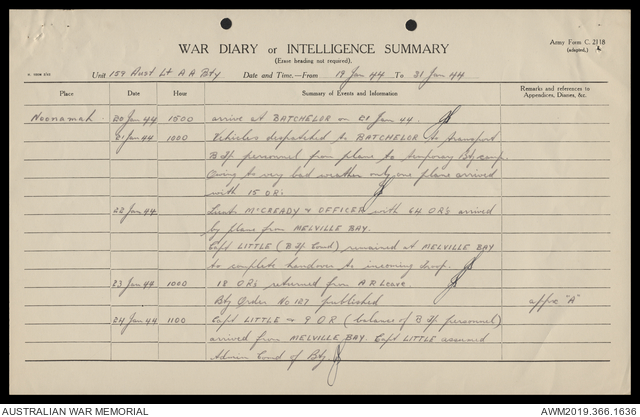 WAR DIARY or INTELLIGENCE SUMMARY
Army Form C. 2118
(adapted.)
(Erase heading not required).
Unit 159 Aust Lt A A Bty Date and Time.—From 19 Jan 44 To 31 Jan 44
Place Date Hour Summary of Events and Information Remarks and references to Appendices, Diaries, &c.
Noonamah 20 Jan 44 1500 arrive at BATCHELOR on 21 Jan 44.
21 Jan 44 1000 Vehicles dispatched to BATCHELOR to transport
B Tp personnel from plane to temporary Bty camp.
Owing to very bad weather only one plane arrived
with 15 ORs
22 Jan 44 Lieut McCREADY & OFFICER with 64 ORs arrived
by plane from MELVILLE BAY.
Capt LITTLE (B Tp Comd) remained at MELVILLE BAY
to complete handover to incoming troop.
23 Jan 44 1000 18 ORs returned from A R Leave.
Bty Order No 127 published appx "A"
24 Jan 44 1100 Capt LITTLE & 9 OR (balance of B Tp personnel)
arrived from MELVILLE BAY. Capt LITTLE assumed
Admin Comd of Bty.
AUSTRALIAN WAR MEMORIAL AWM2019.366.1636